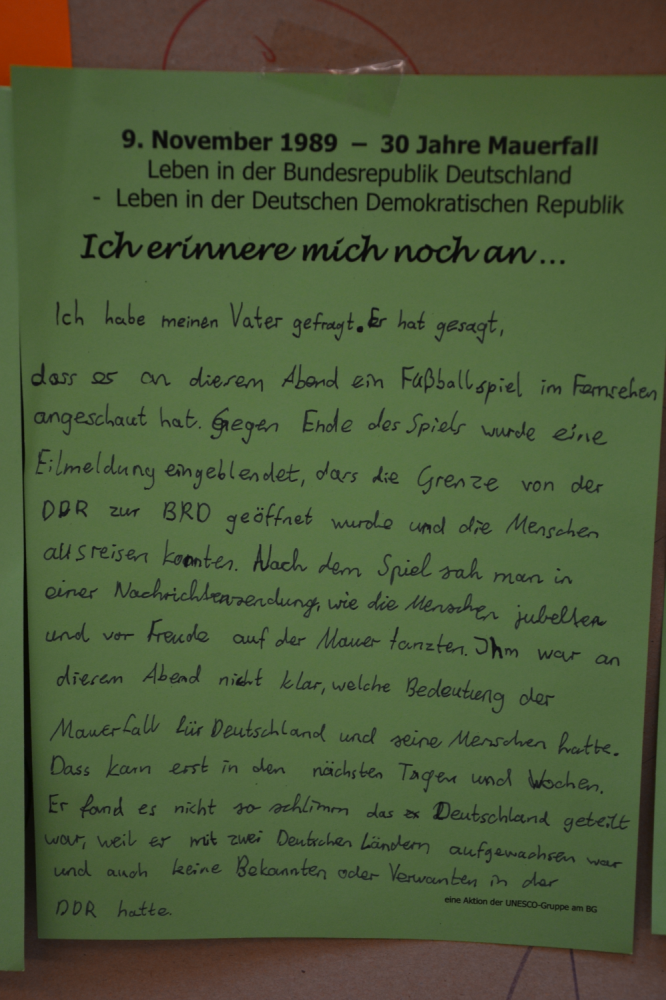 9. November 1989 – 30 Jahre Mauerfall
Leben in der Bundesrepublik Deutschland
- Leben in der Deutschen Demokratischen Republik
Ich erinnere mich noch an...
Ich habe meinen Vater gefragt. Er hat gesagt,
dass es an diesem Abend ein Fußballspiel im Fernsehen
angeschaut hat. Gegen Ende des Spiels wurde eine
Eilmeldung eingeblendet, dass die Grenze von der
DDR zur BRD geöffnet wurde und die Menschen
ausreisen konnten. Nach dem Spiel sah man in
einer Nachrichtensendung, wie die Menschen jubelten
und vor Freude auf der Mauer tanzten. Ihm war an
diesem Abend nicht klar, welche Bedeutung der
Mauerfall für Deutschland und seine Menschen hatte.
Dass kam erst in den nächsten Tagen und Wochen.
Er fand es nicht so schlimm das Deutschland geteilt
war, weil er mit zwei Deutschen Ländern aufgewachsen war
und auch keine Bekannten oder Verwanten in der
DDR hatte.
eine Aktion der UNESCO-Gruppe am BG